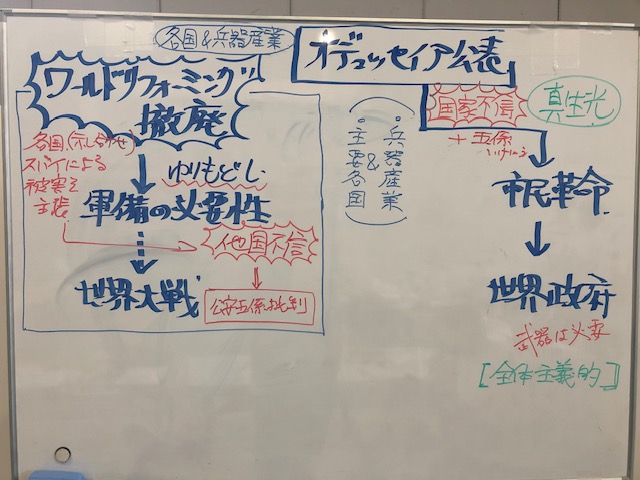 各国&兵器産業
ワールドリフォーミング
撤廃
各国(示し合わせ)
スパイによる
被害を
主張
ゆりもどし
軍備の必要性
他国不信
世界大戦
オデュッセイア公表
国家不信
真生光
市民革命
世界政府
武器は必要
[全体主義的]
(・兵器産業
&
・主要各国)